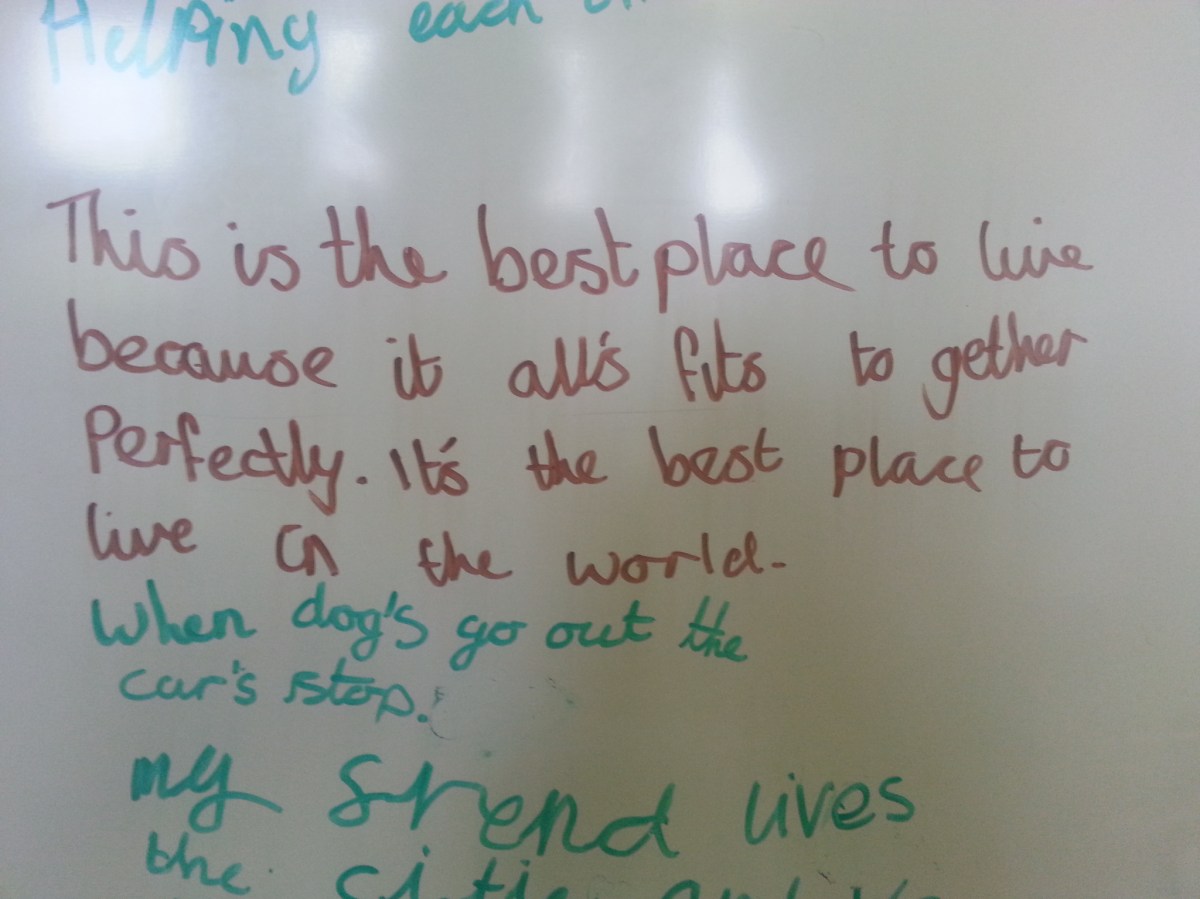 Helping each
This is the best place to live
because it all's fits to gether
Perfectly. It's the best place to
live in the world.
When dog's go out the
car's stop.
my friend lives
the